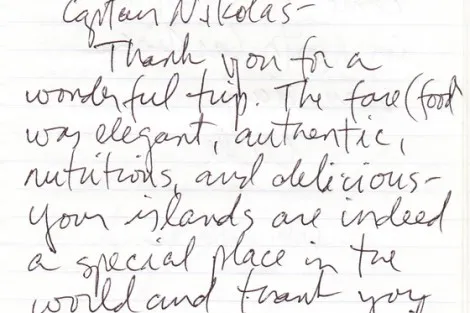 Captain Nikolas-
Thank you for a
wonderful trip. The fare (food
was elegant, authentic,
nutritious, and delicious-
your islands are indeed
a special place in the
world and thank you